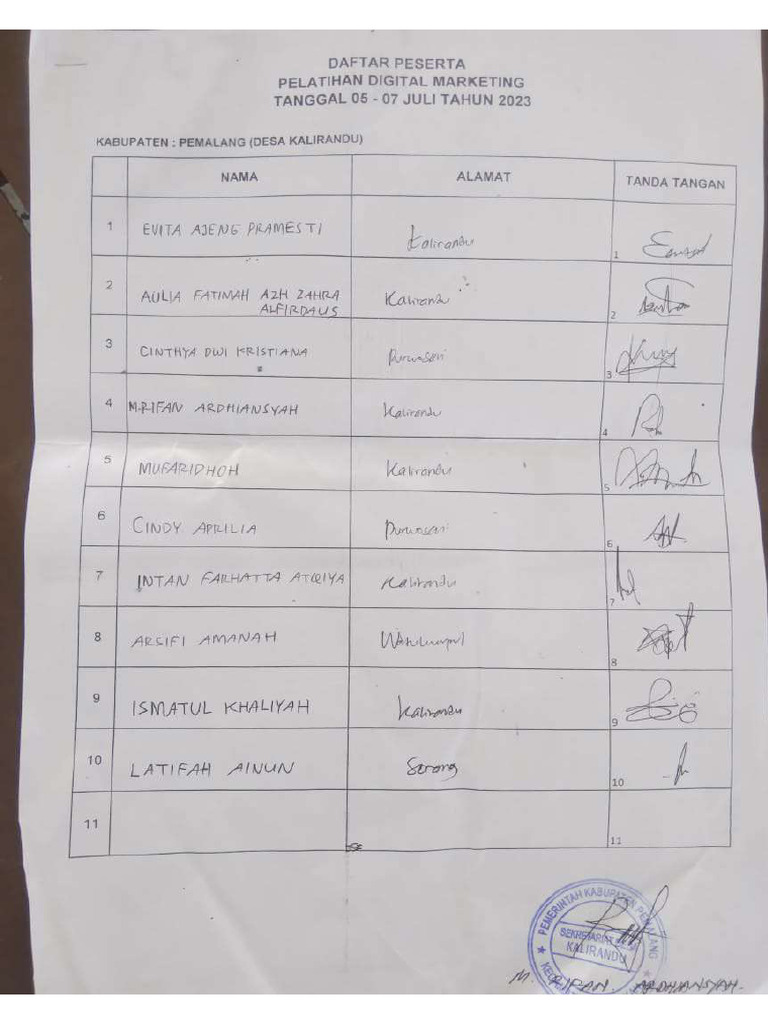 DAFTAR PESERTA
PELATIHAN DIGITAL MARKETING
TANGGAL 05 - 07 JULI TAHUN 2023
KABUPATEN : PEMALANG (DESA KALIRANDU)
NAMA ALAMAT TANDA TANGAN
1 EVITA AJENG PRAMESTI Kalirandu 1
2 AULIA FATIMAH AZH ZAHRA Kalirandu 2
ALFIRDAUS
3 CINTHYA DWI KRISTIANA Purwosari 3
4 M.RIFAN ARDHIANSYAH Kalirandu 4
5 MUFARIDHOH Kalirandu 5
6 CINDY APRILIA Purwosari 6
7 INTAN FARHATTA ATQIYA Kalirandu 7
8 ARSIFI AMANAH 8
9 ISMATUL KHALIYAH Kalirandu 9
10 LATIFAH AINUN Serang 10
11 11
PEMERINTAH KABUPATEN PEMALANG
SEKRETARIAT
KALIRANDU
M. RIFAN. ARDHIANSYAH.